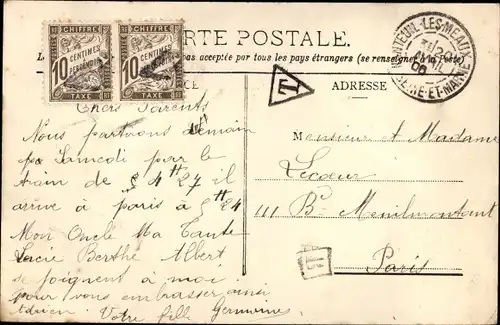 CHIFFRE CHIFFRE
10 CENTIMES À PERCEVOIR 10 CENTIMES À PERCEVOIR
TAXE TAXE
CARTE POSTALE.
pas acceptée par tous les pays étrangers (se renseigner à la
NANTEUIL-LES-MEAUX
SEINE-ET-MARNE
T
ADRESSE
Chers Parents
Nous partirons demain
Samedi par le
train de 4 H 27 il
arrive à paris à 5 H 24
Mon Oncle Ma Tante
Lucie Berthe Albert
se joignent à moi
pour vous embrasser ainsi
Votre fille Germaine
Monsieur et Madame
Lecoeur
111 Bd Menilmontant
Paris
T